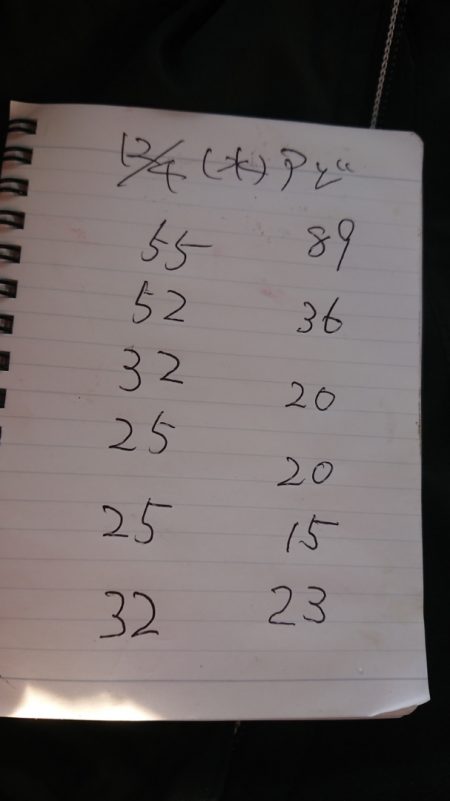 12/4 (木) アジ
55 89
52 36
32 20
25 20
25 15
32 23